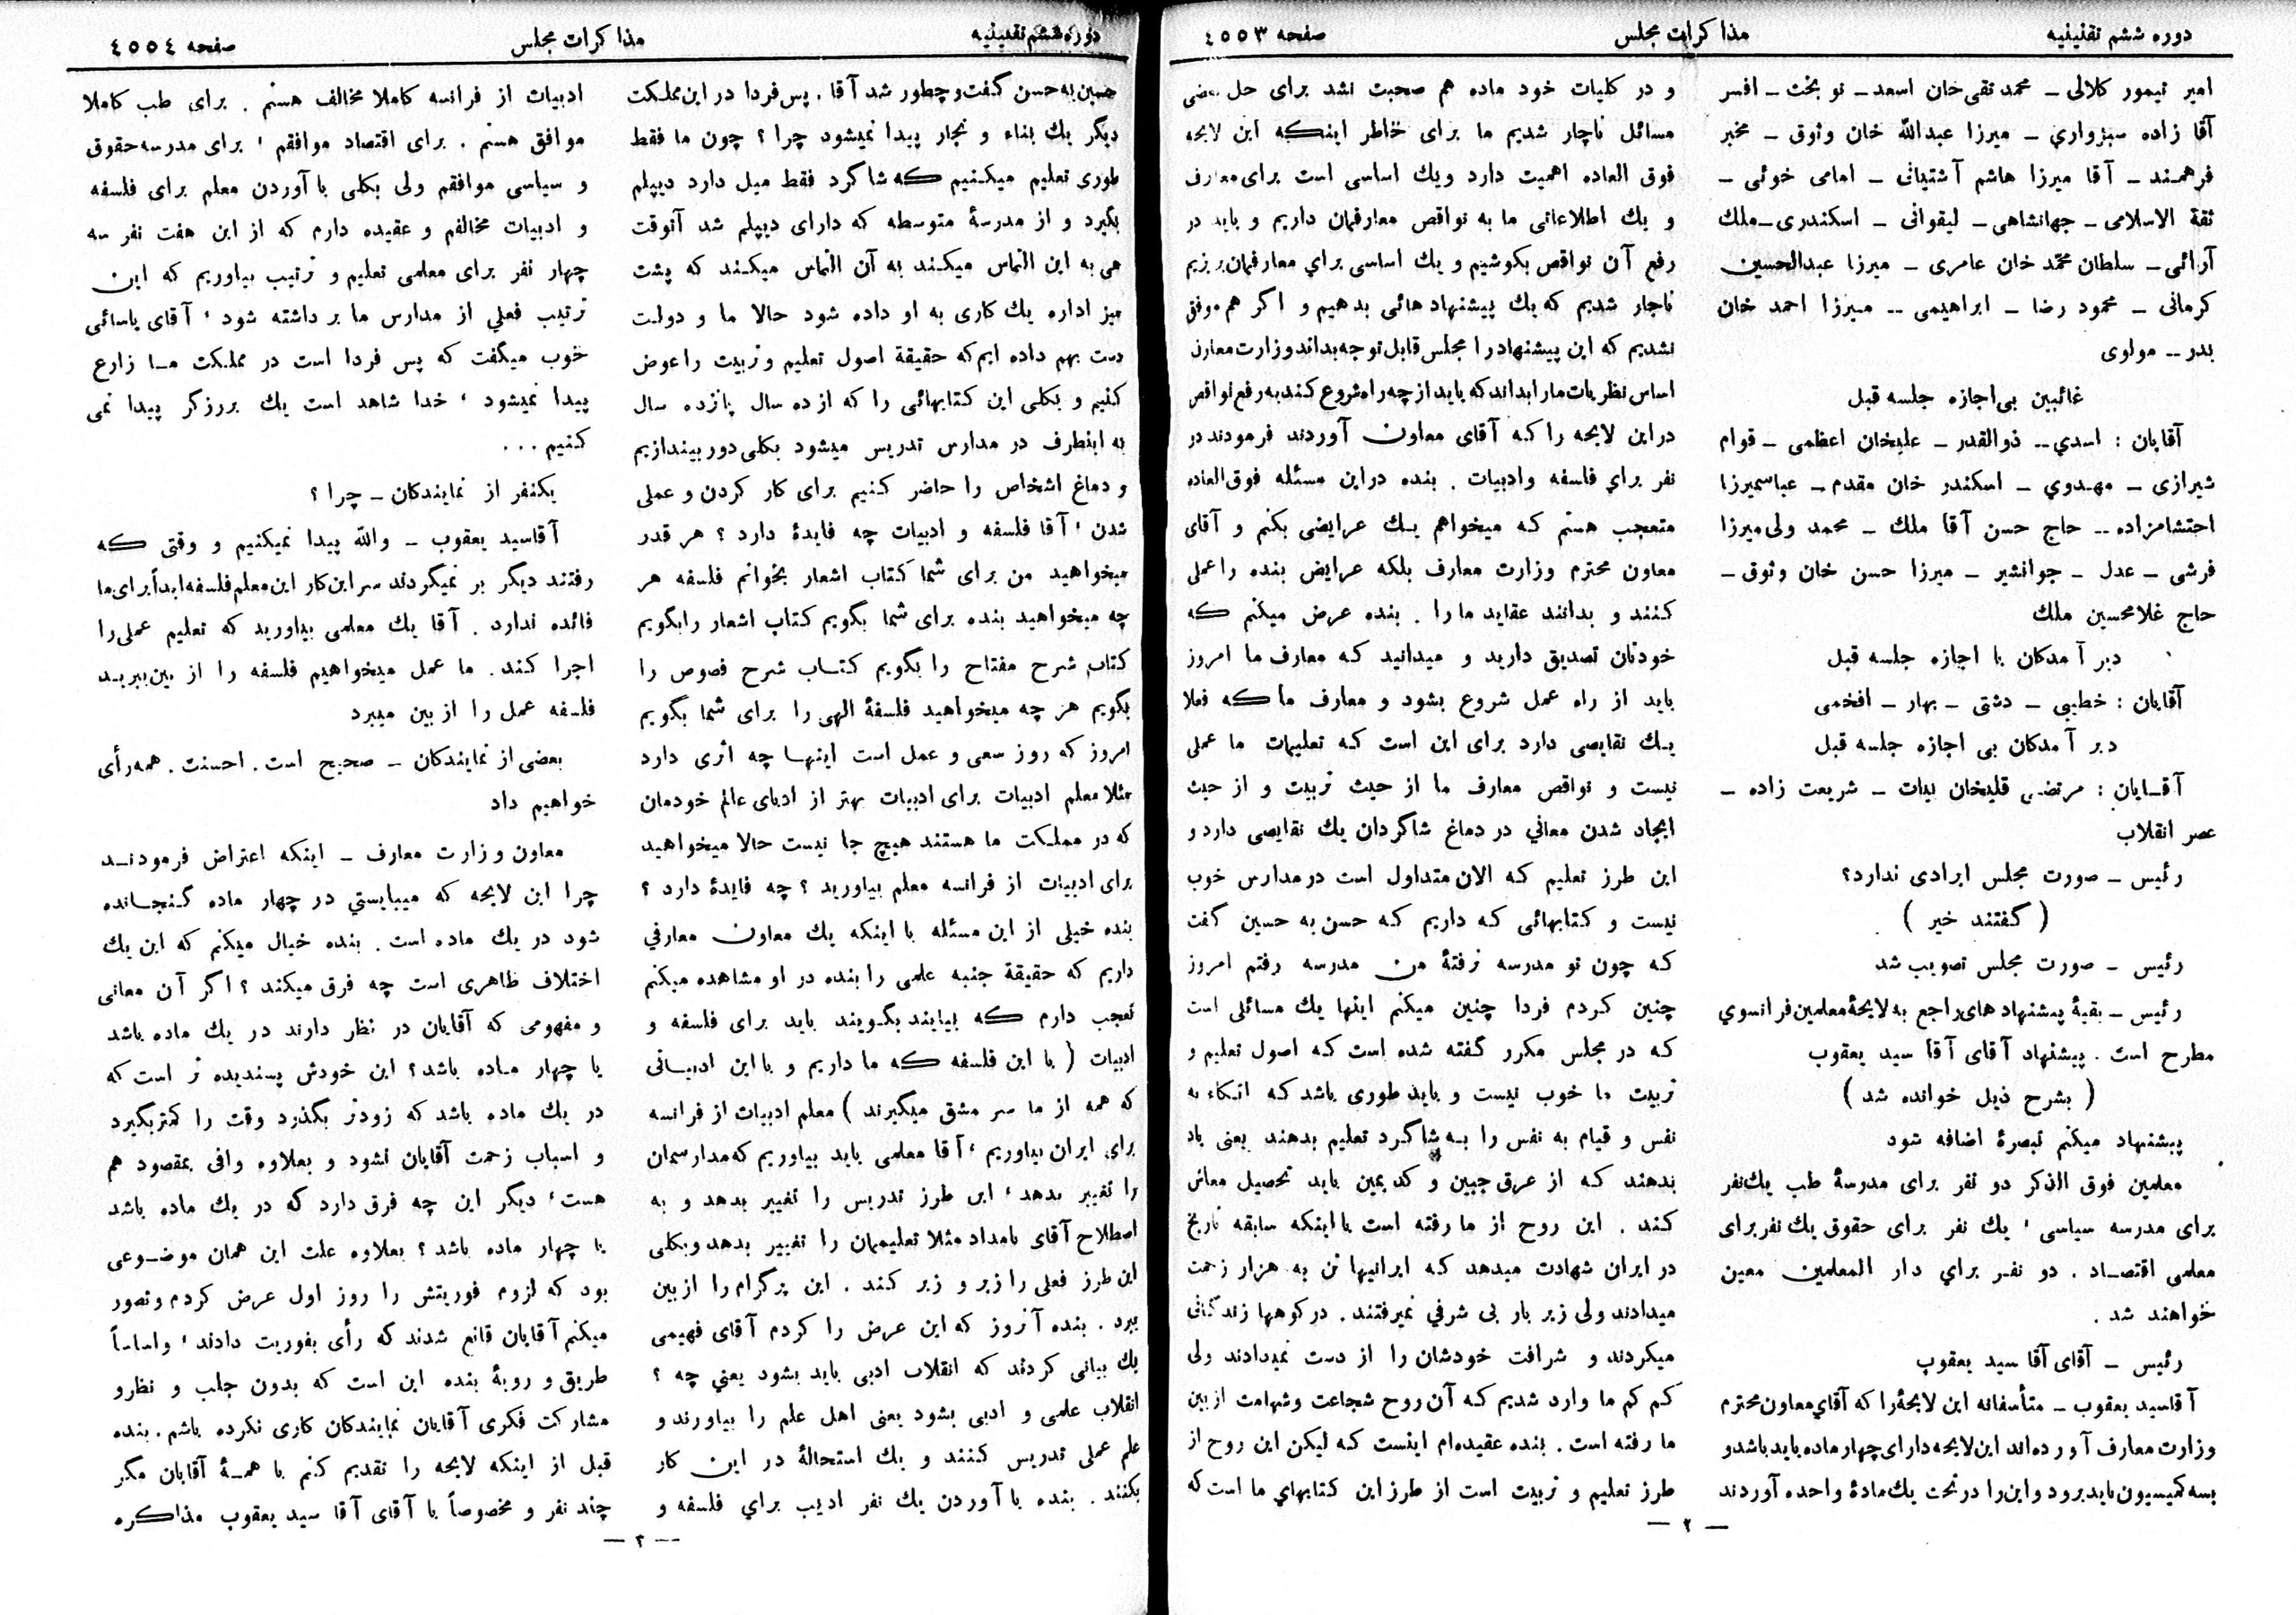 دوره ششم تقنینیه
مذاکرات مجلس
صفحه ٤٥٥٣
امیر تیمور کلالی – محمد تقی خان اسعد – نوبخت – افسر
آقا زاده سبزواري – میرزا عبدالله خان وثوق – مخبر
فرهمند – آقا میرزا هاشم آشتیانی – امامی خوئی –
ثقة الاسلامی – جهانشاهی – لیقوانی – اسکندری – ملك
آرائی – سلطان محمد خان عامری – میرزا عبدالحسین
کرمانی – محمود رضا – ابراهیمی – میرزا احمد خان
بدر – مولوی
غائبین بی اجازه جلسه قبل
آقایان : اسدي – ذوالقدر – علیخان اعظمی – قوام
شیرازی – مهدوي – اسکندر خان مقدم – عباسمیرزا
احتشامزاده – حاج حسن آقا ملك – محمد ولی میرزا
فرشی – عدل – جوانشیر – میرزا حسن خان وثوق –
حاج غلامحسین ملك
دیر آمدکان با اجازه جلسه قبل
آقایان : خطیبی – دشتی – بهار – افخمی
دیر آمدکان بی اجازه جلسه قبل
آقایان : مرتضی قلیخان بیات – شریعت زاده –
عصر انقلاب
رئیس – صورت مجلس ایرادی ندارد؟
( گفتند خیر )
رئیس – صورت مجلس تصویب شد
رئیس – بقیهٔ پیشنهاد های راجع به لایحهٔ معلمین فرانسوي
مطرح است . پیشنهاد آقای آقا سید یعقوب
( بشرح ذیل خوانده شد )
پیشنهاد میکنم تبصرهٔ اضافه شود
معلمین فوق الذکر دو نفر برای مدرسهٔ طب یك نفر
برای مدرسه سیاسی ، یك نفر برای حقوق یك نفر برای
معلمی اقتصاد . دو نفر براي دار المعلمین معین
خواهند شد .
رئیس – آقای آقا سید یعقوب
آقاسید یعقوب – متأسفانه این لایحهٔ را که آقاي معاون محترم
وزارت معارف آورده‌اند این لایحه دارای چهار ماده باید باشد و
بسه کمیسیون باید برود و این را در تحت یك مادهٔ واحده آوردند
و در کلیات خود ماده هم صحبت نشد برای حل بعضی
مسائل ناچار شدیم ما برای خاطر اینکه این لایحه
فوق العاده اهمیت دارد ویك اساسی است برای معارف
و یك اطلاعاتی ما به نواقص معارفمان داریم و باید در
رفع آن نواقص بکوشیم و یك اساسی براي معارفمان بریزیم
ناچار شدیم که یك پیشنهاد هائی بدهیم و اگر هم موفق
نشدیم که این پیشنهاد را مجلس قابل توجه بداند وزارت معارف
اساس نظریات ما را بداند که باید از چه راه شروع کند به رفع نواقص
در این لایحه را که آقای معاون آوردند فرمودند در
نفر براي فلسفه وادبیات . بنده در این مسئله فوق العاده
متعجب هستم که میخواهم یك عرایضی بکنم و آقای
معاون محترم وزارت معارف بلکه عرایض بنده را عملی
کنند و بدانند عقاید ما را . بنده عرض میکنم که
خودتان تصدیق دارید و میدانید که معارف ما امروز
باید از راه عمل شروع بشود و معارف ما که فعلا
یك نقایصی دارد برای این است که تعلیمات ما عملی
نیست و نواقص معارف ما از حیث تربیت و از حیث
ایجاد شدن معاني در دماغ شاگردان یك نقایصی دارد و
این طرز تعلیم که الان متداول است در مدارس خوب
نیست و کتابهائی که داریم که حسن به حسین گفت
که چون تو مدرسه نرفتهٔ من مدرسه رفتم امروز
چنین کردم فردا چنین میکنم اینها یك مسائلی است
که در مجلس مکرر گفته شده است که اصول تعلیم و
تربیت ما خوب نیست و باید طوری باشد که اتکاء به
نفس و قیام به نفس را به شاگرد تعلیم بدهند یعنی یاد
بدهند که از عرق جبین و کد یمین باید تحصیل معاش
کند . این روح از ما رفته است با اینکه سابقه تاریخ
در ایران شهادت میدهد که ایرانیها تن به هزار زحمت
میدادند ولی زیر بار بی شرفي نمیرفتند . در کوهها زندگانی
میکردند و شرافت خودشان را از دست نمیدادند ولی
کم کم ما وارد شدیم که آن روح شجاعت وشهامت از بین
ما رفته است . بنده عقیده‌ام اینست که لیکن این روح از
طرز تعلیم و تربیت است از طرز این کتابهاي ما است که
– ۲ –
دوره ششم تقنینیه
مذاکرات مجلس
صفحه ٤٥٥٤
حسین به حسن گفت و چطور شد آقا . پس فردا در این مملکت
دیگر یك بناء و نجار پیدا نمیشود چرا ؟ چون ما فقط
طوری تعلیم میکنیم که شاگرد فقط میل دارد دیپلم
بگیرد و از مدرسهٔ متوسطه که دارای دیپلم شد آنوقت
هی به این التماس میکند به آن التماس میکند که پشت
میز اداره یك کاری به او داده شود حالا ما و دولت
دست بهم داده ایم که حقیقة اصول تعلیم و تربیت را عوض
کنیم و بکلی این کتابهائی را که از ده سال پانزده سال
به اینطرف در مدارس تدریس میشود بکلی دور بیندازیم
و دماغ اشخاص را حاضر کنیم برای کار کردن و عملی
شدن ، آقا فلسفه و ادبیات چه فایدهٔ دارد ؟ هر قدر
میخواهید من برای شما کتاب اشعار بخوانم فلسفه هر
چه میخواهید بنده برای شما بگویم کتاب اشعار را بگویم
کتاب شرح مفتاح را بگویم کتاب شرح فصوص را
بگویم هر چه میخواهید فلسفهٔ الهی را برای شما بگویم
امروز که روز سعی و عمل است اینها چه اثری دارد
مثلا معلم ادبیات برای ادبیات بهتر از ادبای عالم خودمان
که در مملکت ما هستند هیچ جا نیست حالا میخواهید
برای ادبیات از فرانسه معلم بیاورید ؟ چه فایدهٔ دارد ؟
بنده خیلی از این مسئله با اینکه یك معاون معارفي
داریم که حقیقة جنبه علمی را بنده در او مشاهده میکنم
تعجب دارم که بیایند بگویند باید برای فلسفه و
ادبیات ( با این فلسفه که ما داریم و با این ادبیاتی
که همه از ما سر مشق میگیرند ) معلم ادبیات از فرانسه
برای ایران بیاوریم ، آقا معلمی باید بیاوریم که مدارسمان
را تغییر بدهد ، این طرز تدریس را تغییر بدهد و به
اصطلاح آقای بامداد مثلا تعلیممان را تغییر بدهد و بکلی
این طرز فعلی را زیر و زبر کند . این پرگرام را از بین
ببرد . بنده آنروز که این عرض را کردم آقای فهیمی
یك بیانی کردند که انقلاب ادبی باید بشود یعني چه ؟
انقلاب علمی و ادبی بشود یعنی اهل علم را بیاورند و
علم عملی تدریس کنند و یك استحالهٔ در این کار
بکنند . بنده با آوردن یك نفر ادیب براي فلسفه و
ادبیات از فرانسه کاملا مخالف هستم . برای طب کاملا
موافق هستم . برای اقتصاد موافقم ، برای مدرسه حقوق
و سیاسی موافقم ولی بکلی با آوردن معلم برای فلسفه
و ادبیات مخالفم و عقیده دارم که از این هفت نفر سه
چهار نفر برای معلمی تعلیم و تربیت بیاوریم که این
ترتیب فعلي از مدارس ما بر داشته شود ، آقای یاسائی
خوب میگفت که پس فردا است در مملکت ما زارع
پیدا نمیشود ، خدا شاهد است یك برزگر پیدا نمی
کنیم ...
یکنفر از نمایندکان – چرا ؟
آقاسید یعقوب – والله پیدا نمیکنیم و وقتی که
رفتند دیگر بر نمیگردند سر این کار این معلم فلسفه ابداً برای ما
فائده ندارد . آقا یك معلمی بیاورید که تعلیم عملی را
اجرا کند . ما عمل میخواهیم فلسفه را از بین ببرید
فلسفه عمل را از بین میبرد
بعضی از نمایندکان – صحیح است . احسنت . همه رأی
خواهیم داد
معاون وزارت معارف – اینکه اعتراض فرمودند
چرا این لایحه که میبایستي در چهار ماده گنجانده
شود در یك ماده است . بنده خیال میکنم که این یك
اختلاف ظاهری است چه فرق میکند ؟ اگر آن معانی
و مفهومی که آقایان در نظر دارند در یك ماده باشد
یا چهار ماده باشد ؟ این خودش پسندیده تر است که
در یك ماده باشد که زودتر بگذرد وقت را کمتر بگیرد
و اسباب زحمت آقایان نشود و بعلاوه وافی بمقصود هم
هست ، دیگر این چه فرق دارد که در یك ماده باشد
یا چهار ماده باشد ؟ بعلاوه علت این همان موضوعی
بود که لزوم فوریتش را روز اول عرض کردم و تصور
میکنم آقایان قانع شدند که رأی بفوریت دادند ، و اساساً
طریق و رویهٔ بنده این است که بدون جلب و نظر و
مشارکت فکری آقایان نمایندکان کاری نکرده باشم . بنده
قبل از اینکه لایحه را تقدیم کنم با همهٔ آقایان مگر
چند نفر و مخصوصاً با آقای آقا سید یعقوب مذاکره
– ۳ –